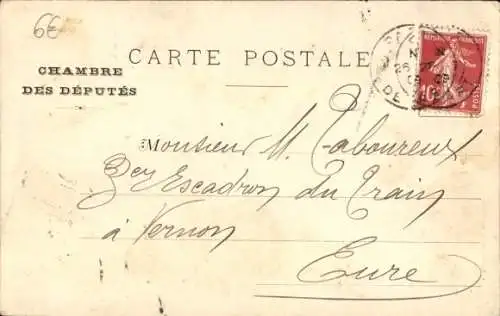 6€
CARTE POSTALE
CHAMBRE
DES DÉPUTÉS
RÉPUBLIQUE FRANÇAISE
10
POSTES
Monsieur M. Laboureux
3e Escadron du Train
à Vernon
Eure